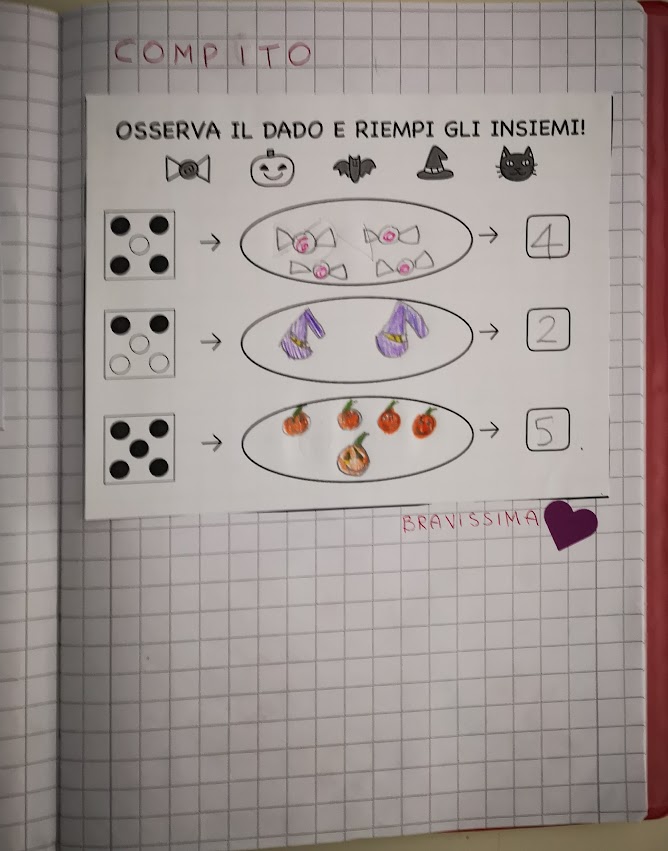 COMPITO
OSSERVA IL DADO E RIEMPI GLI INSIEMI!
→ → 4
→ → 2
→ → 5
BRAVISSIMA